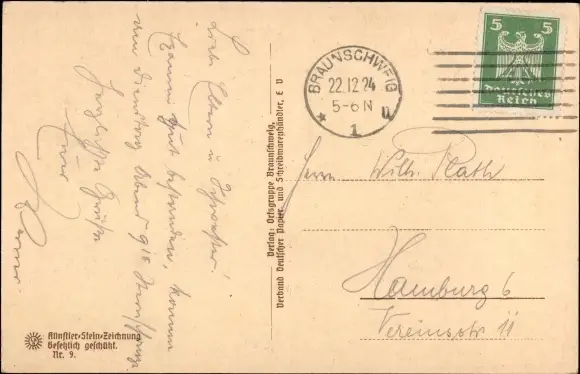 L.
Liebe Eltern u. Schwester!
Examen gut bestanden, komme
am Dienstag Abend 9 15
Herzliche Grüße
Euer
Werner
Künstler-Stein-Zeichnung
Gesetzlich geschützt.
Nr. 9.
Verlag: Ortsgruppe Braunschweig,
Verband Deutscher Papier- und Schreibwarenhändler, E V
BRAUNSCHWEIG
22.12.24
5-6 N
* 1 n
5 5
Deutsches
Reich
Herrn Wilh. Plath
Hamburg 6
Vereinsstr 11